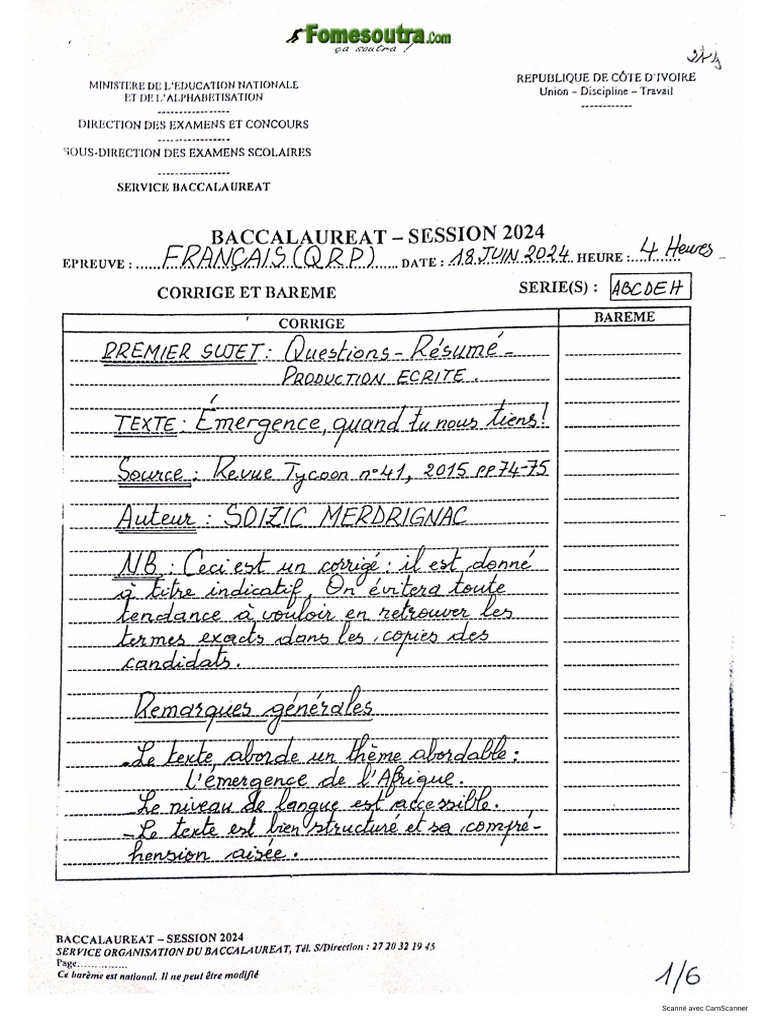 Fomesoutra.Com
ça soutra !
MINISTERE DE L'EDUCATION NATIONALE
ET DE L'ALPHABETISATION
DIRECTION DES EXAMENS ET CONCOURS
SOUS-DIRECTION DES EXAMENS SCOLAIRES
SERVICE BACCALAUREAT
REPUBLIQUE DE CÔTE D'IVOIRE
Union – Discipline – Travail
BACCALAUREAT – SESSION 2024
EPREUVE : FRANÇAIS (QRP) DATE : 18 JUIN 2024 HEURE : 4 Heures
CORRIGE ET BAREME SERIE(S) : ABCDEH
CORRIGE BAREME
PREMIER SUJET : Questions - Résumé -
PRODUCTION ECRITE.
TEXTE : Émergence, quand tu nous tiens !
Source : Revue Tycoon n°41, 2015 PP74-75
Auteur : SOIZIC MERDRIGNAC
NB : Ceci est un corrigé : il est donné
à titre indicatif. On évitera toute
tendance à vouloir en retrouver les
termes exacts dans les copies des
candidats.
Remarques générales
- Le texte aborde un thème abordable :
l'émergence de l'Afrique.
- Le niveau de langue est accessible.
- Le texte est bien structuré et sa compré-
hension aisée.
BACCALAUREAT – SESSION 2024
SERVICE ORGANISATION DU BACCALAUREAT, Tél. S/Direction : 27 20 32 19 45
Page..............
Ce barème est national. Il ne peut être modifié
1/6
Scanné avec CamScanner